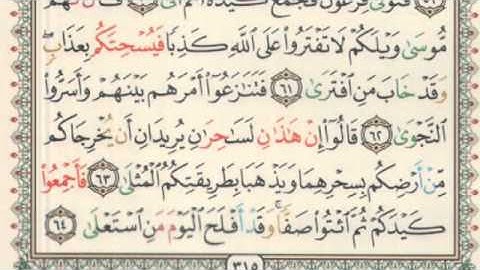 فَتَوَلَّىٰ فِرْعَوْنُ فَجَمَعَ كَيْدَهُۥ ثُمَّ أَتَىٰ ٦٠ قَالَ لَهُم
مُّوسَىٰ وَيْلَكُمْ لَا تَفْتَرُوا۟ عَلَى ٱللَّهِ كَذِبًا فَيُسْحِتَكُم بِعَذَابٍ ۖ
وَقَدْ خَابَ مَنِ ٱفْتَرَىٰ ٦١ فَتَنَٰزَعُوٓا۟ أَمْرَهُم بَيْنَهُمْ وَأَسَرُّوا۟
ٱلنَّجْوَىٰ ٦٢ قَالُوٓا۟ إِنْ هَٰذَٰنِ لَسَٰحِرَٰنِ يُرِيدَانِ أَن يُخْرِجَاكُم
مِّنْ أَرْضِكُم بِسِحْرِهِمَا وَيَذْهَبَا بِطَرِيقَتِكُمُ ٱلْمُثْلَىٰ ٦٣ فَأَجْمِعُوا۟
كَيْدَكُمْ ثُمَّ ٱئْتُوا۟ صَفًّا ۚ وَقَدْ أَفْلَحَ ٱلْيَوْمَ مَنِ ٱسْتَعْلَىٰ ٦٤
٣١٥